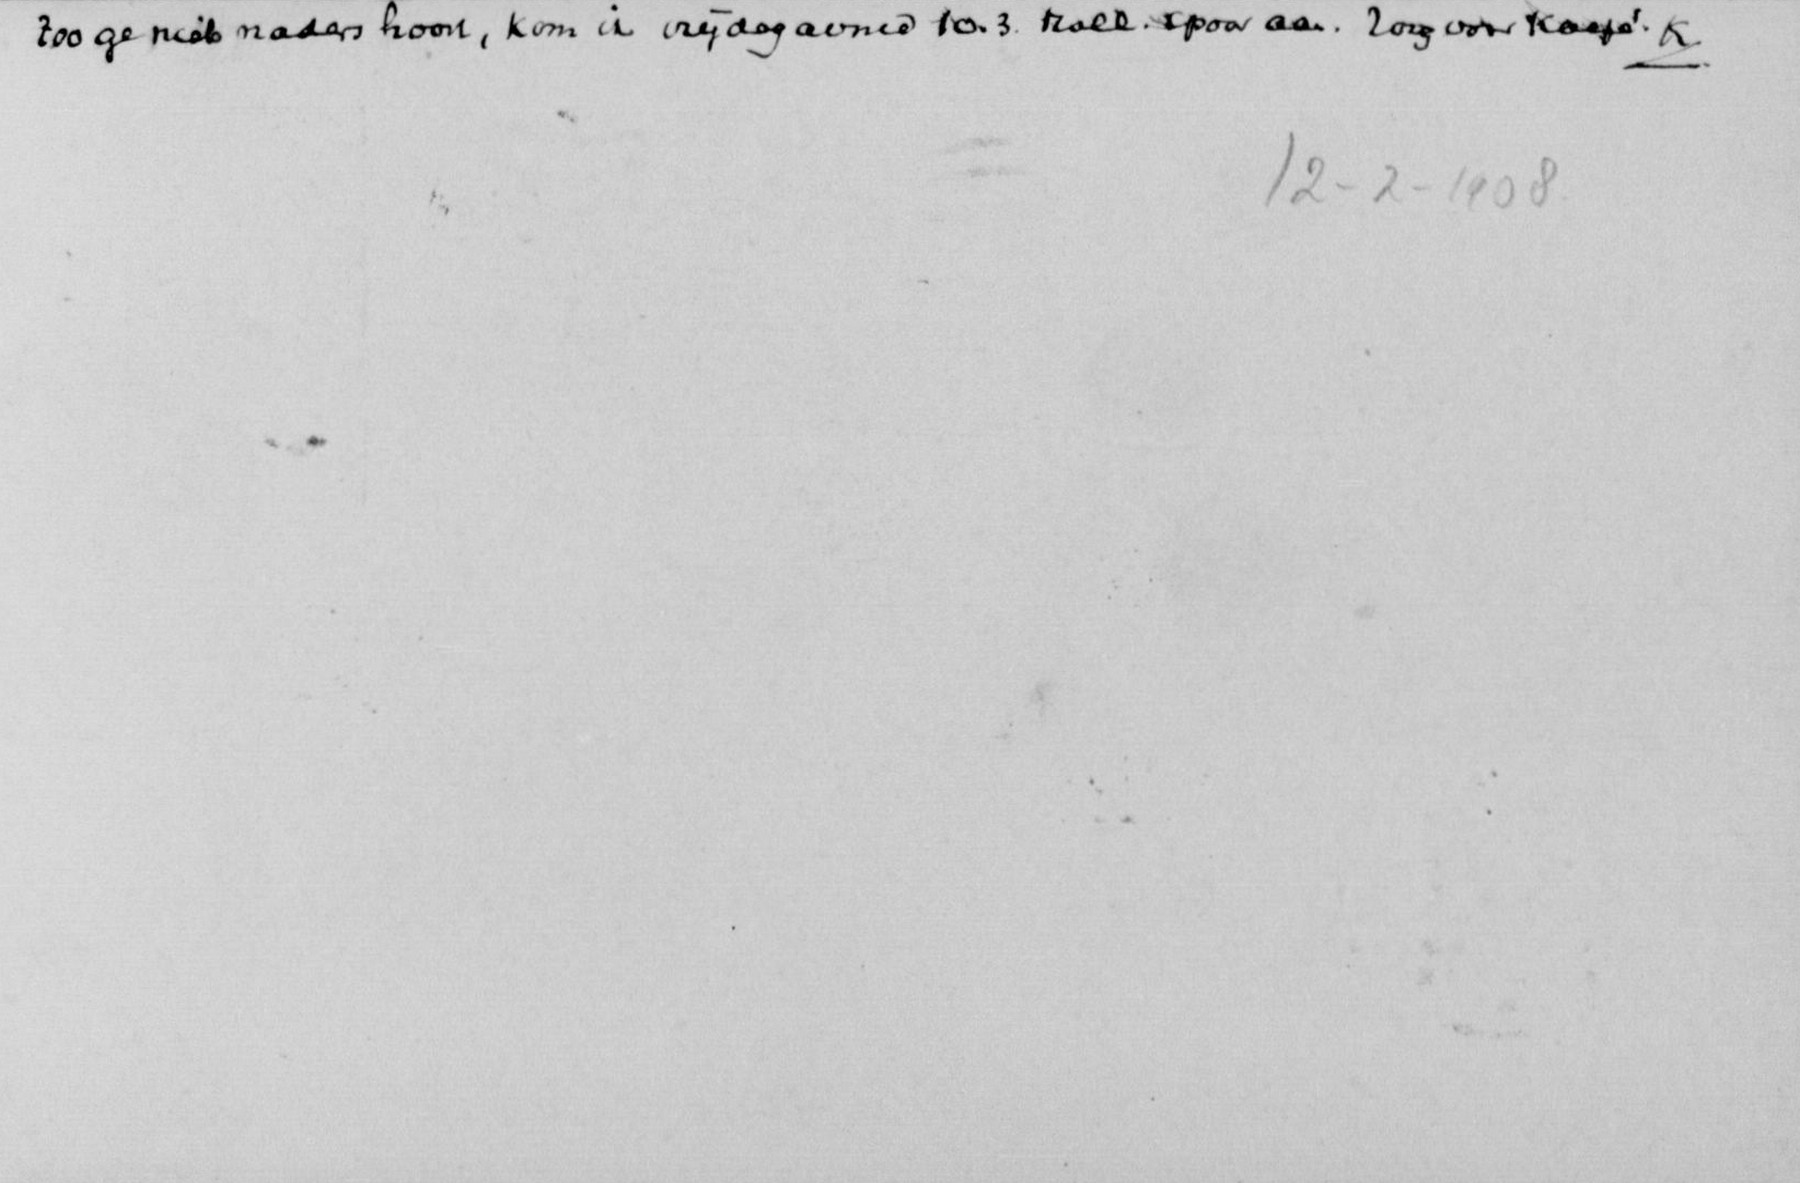 Zoo ge niets naders hoort, kom ik vrijdagavond 10.3. Holl. spoor aan. Zorg voor Kaefé. K
12-2-1908